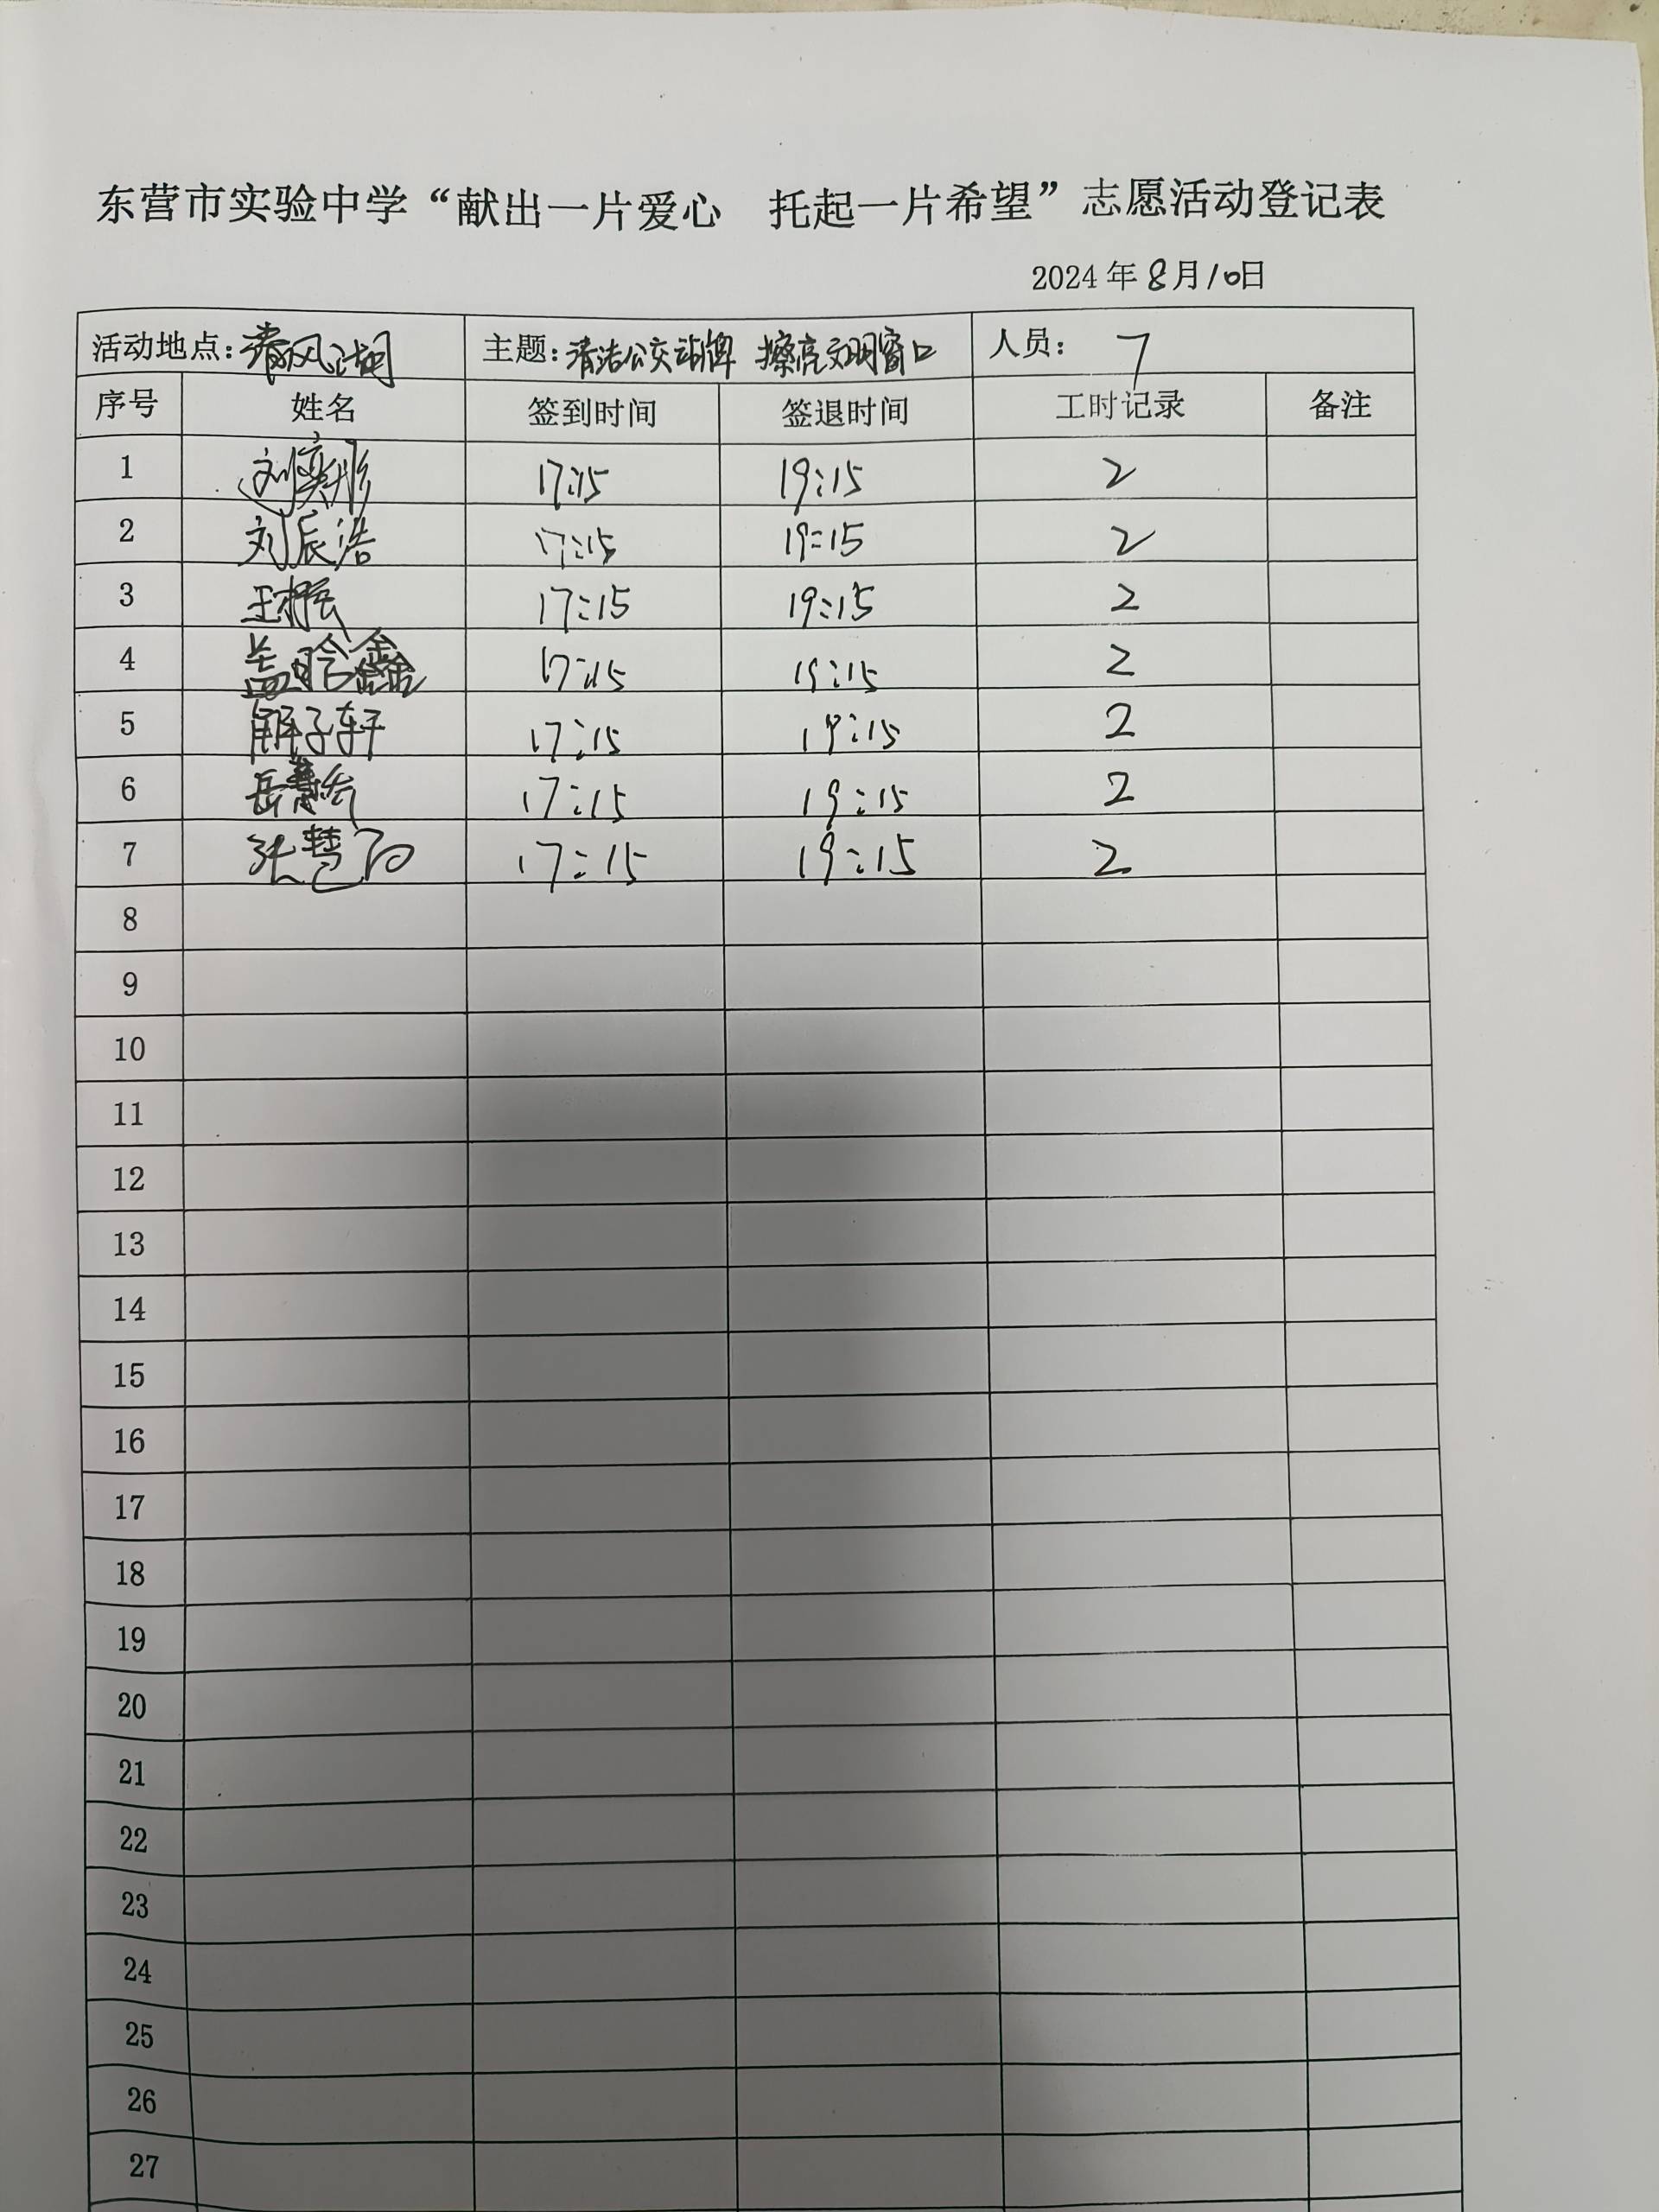 东营市实验中学“献出一片爱心 托起一片希望”志愿活动登记表
2024年8月10日
活动地点:清风湖 主题:清洁公交站牌 擦亮文明窗口 人员: 7
序号 姓名 签到时间 签退时间 工时记录 备注
1 刘奕彤 17:15 19:15 2
2 刘辰浩 17:15 19:15 2
3 王 17:15 19:15 2
4 盖晗鑫 17:15 19:15 2
5 解子轩 17:15 19:15 2
6 岳 17:15 19:15 2
7 张慧 17:15 19:15 2
8
9
10
11
12
13
14
15
16
17
18
19
20
21
22
23
24
25
26
27